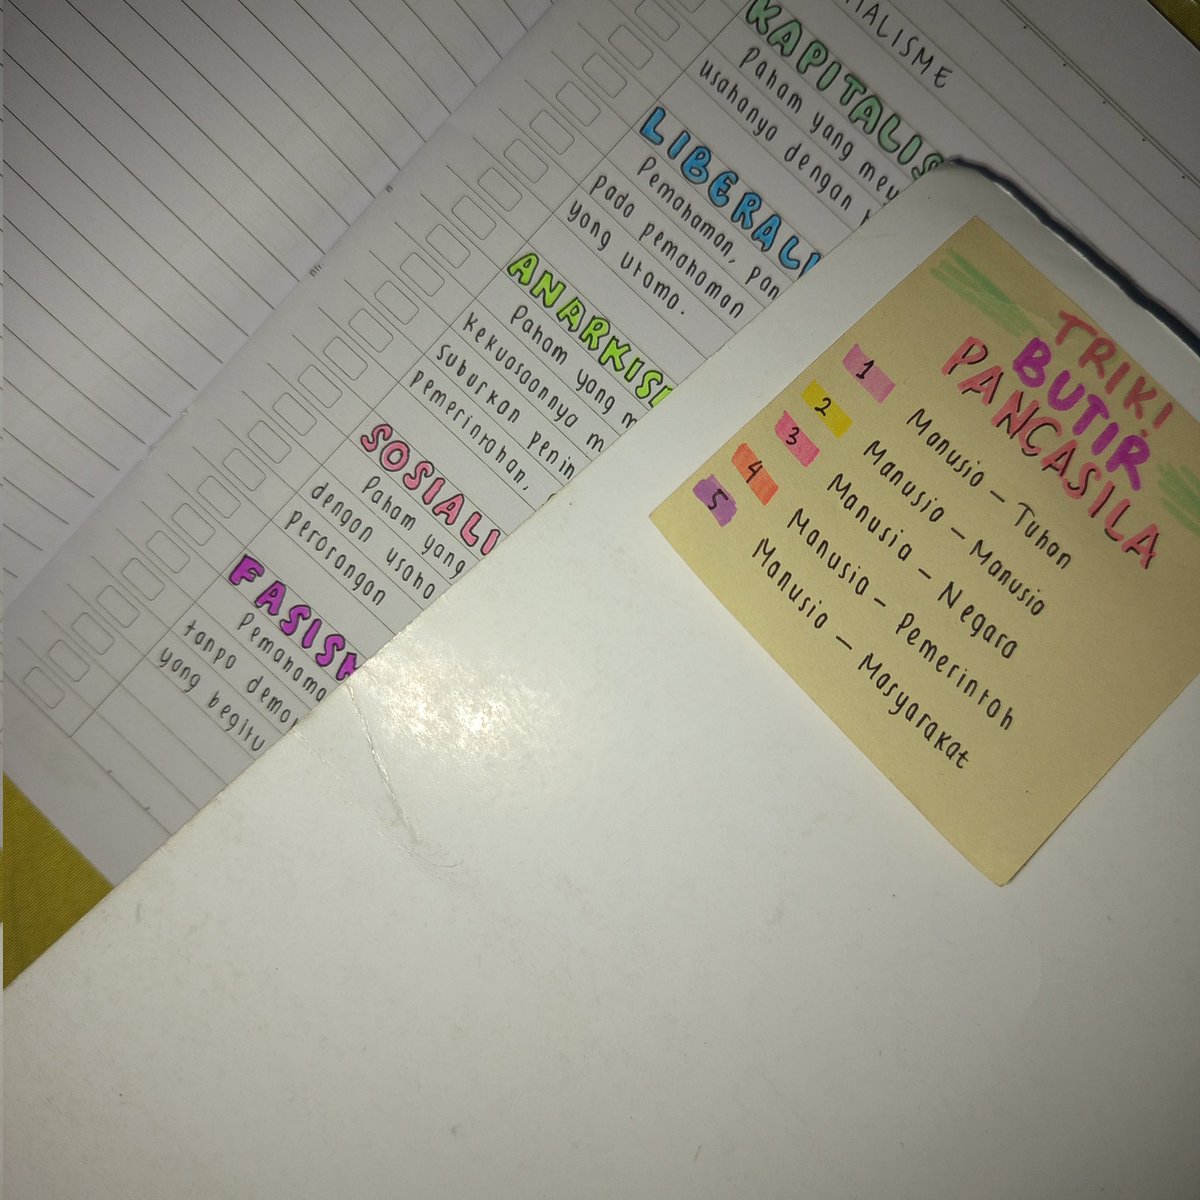 IALISME
KAPITALIS
Paham yang
usahanya dengan
LIBERALI
Pemahaman, pan
pada pemahaman
yang utama.
ANARKIS
Paham yang m
kekuasaannya m
suburkan penin
pemerintahan,
SOSIALI
Paham yang
dengan usaha
perorangan
FASISM
Pemahama
tanpa demo
yang begitu
TRIK!
BUTIR
PANCASILA
1 Manusia - Tuhan
2 Manusia - Manusia
3 Manusia - Negara
4 Manusia - Pemerintah
5 Manusia - Masyarakat